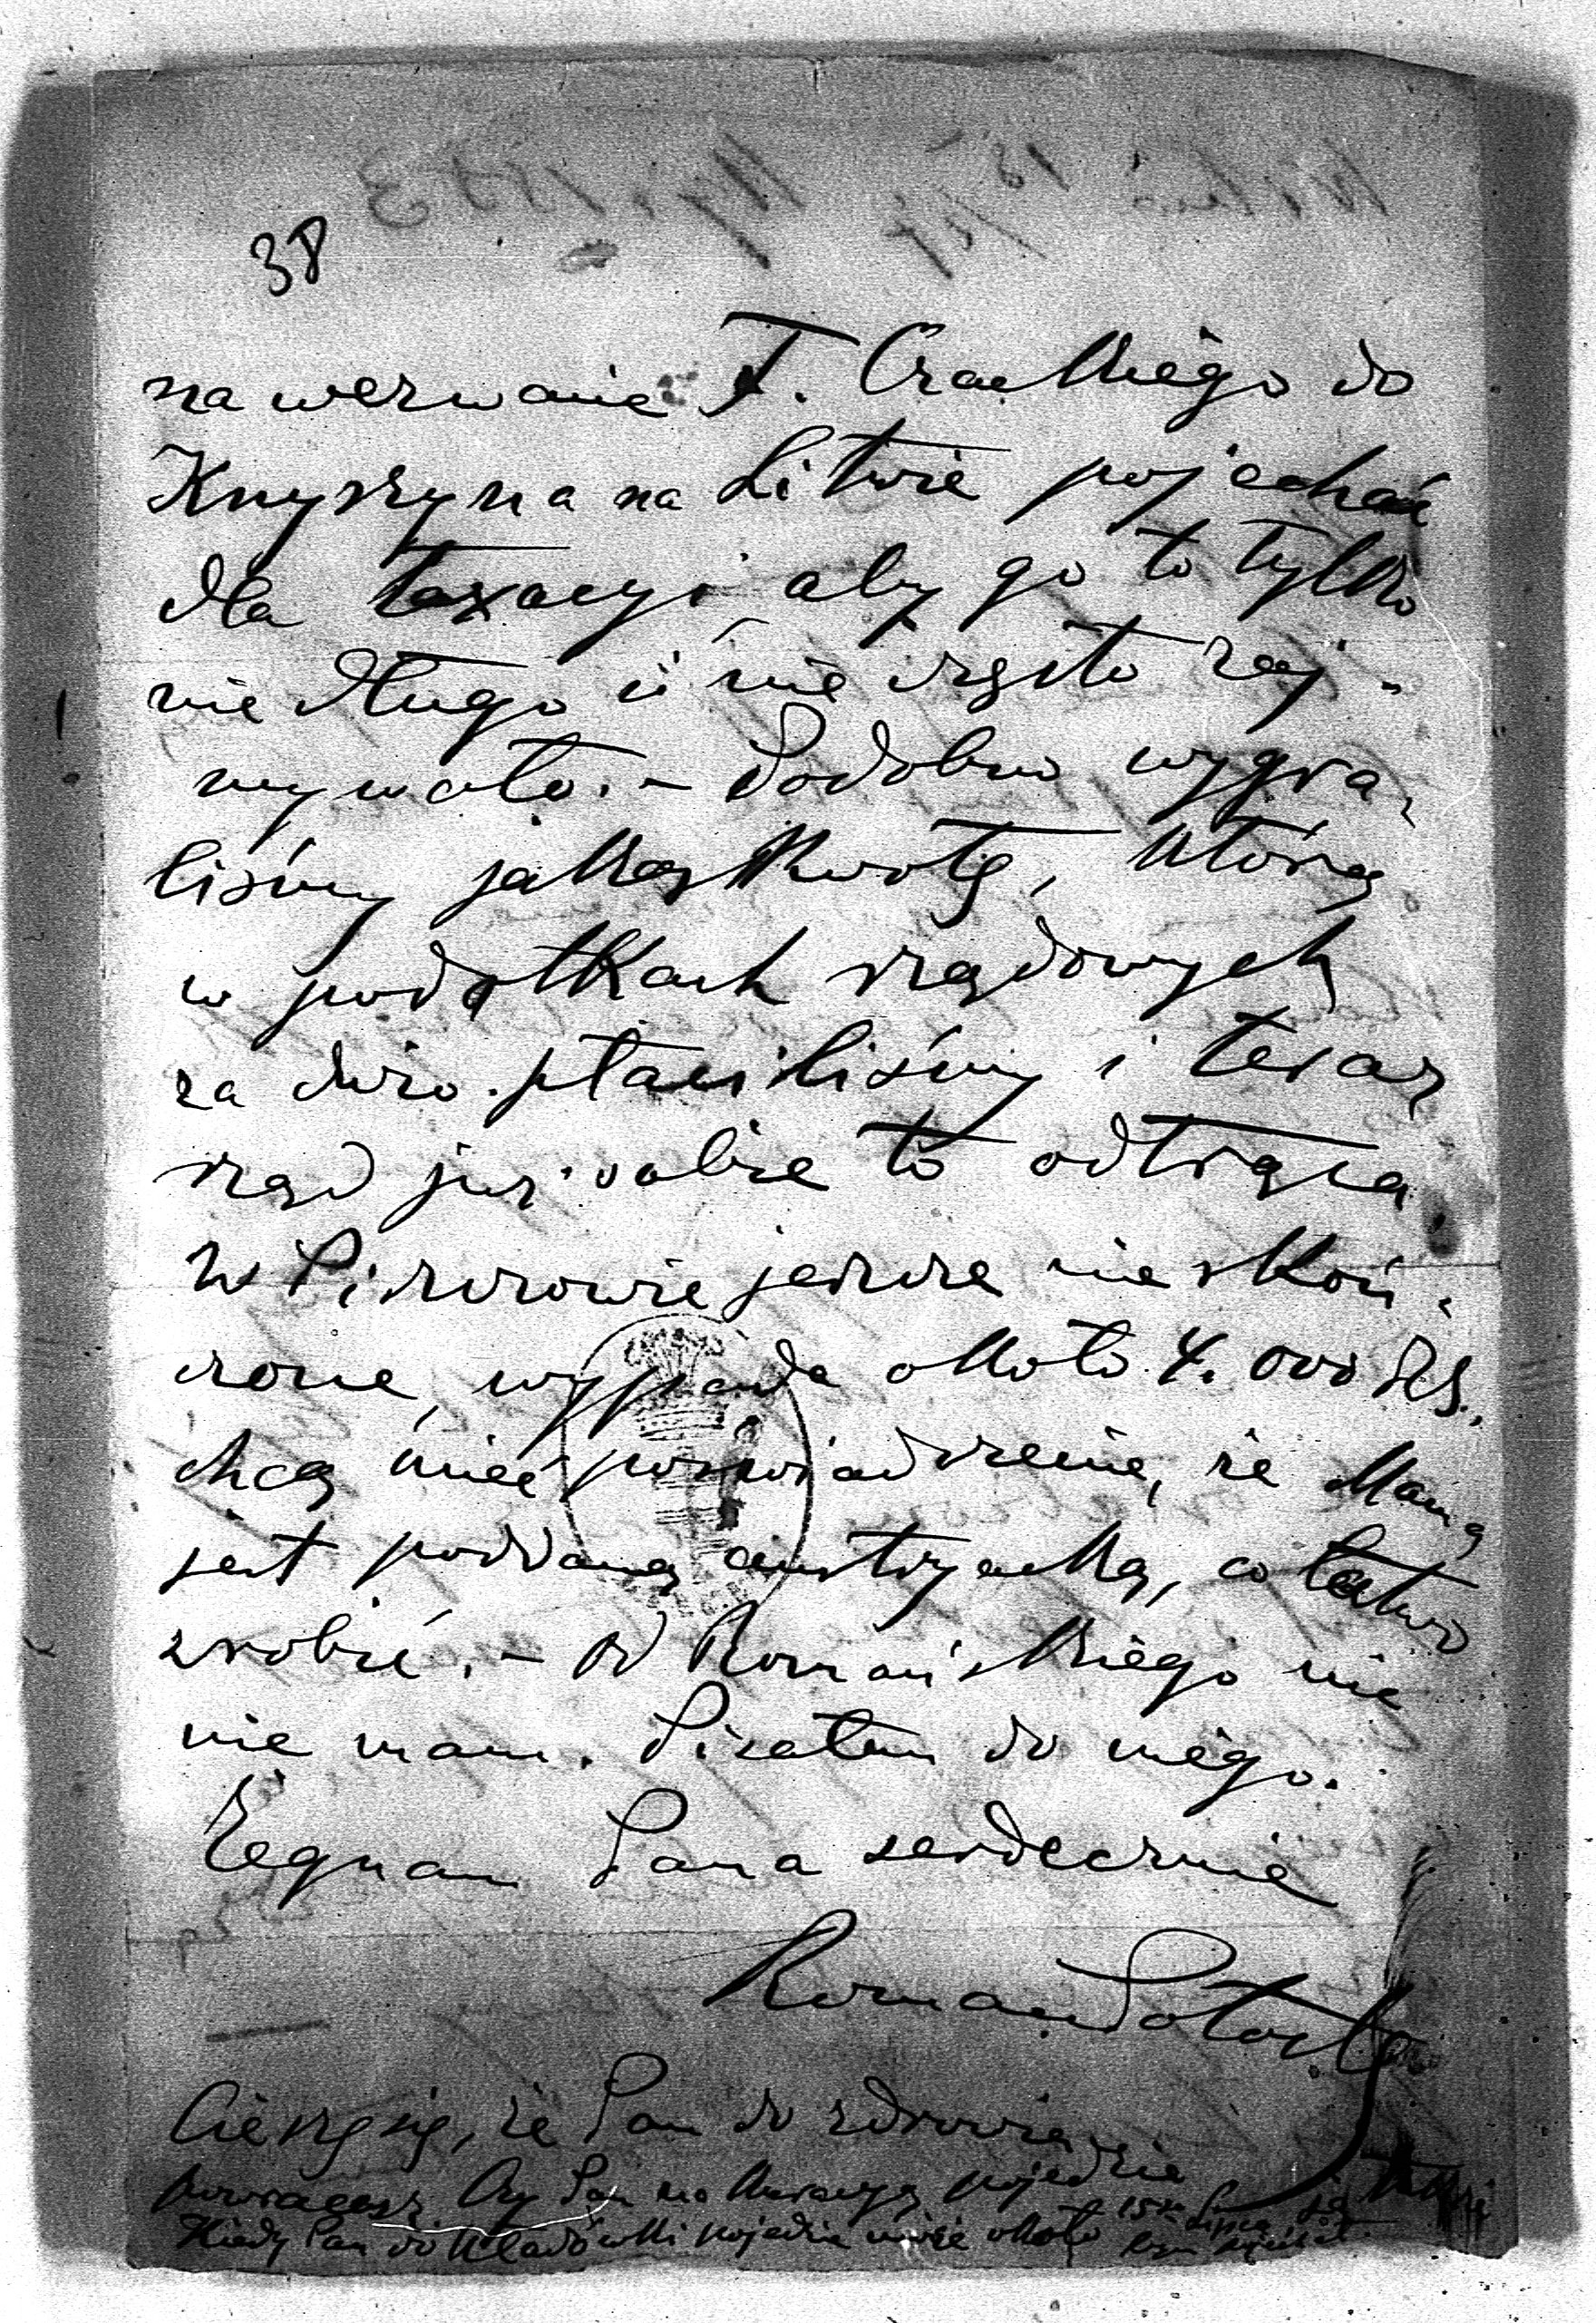 38
na wezwanie T. Czackiego do
Knyszyna na Litwie pojechać
dla taxacyi, aby go to tylko
nie długo i nie często zaj-
mywało. - Podobno wygra-
liśmy jakąś kwotę, którą
w podatkach rządowych
za dużo płaciliśmy i teraz
rząd już sobie to odtrąca.
W Piszczowie jeszcze nie skoń-
czone, wypada około 4.000
chcą mieć poświadczenie, że Mama
jest poddaną austryacką, co łatwo
zrobić. - Od Romańskiego nic
nie mam. Pisałem do niego.
Żegnam Pana serdecznie
Roman Potocki
Cieszę się, że Pan do zdrowia
powracasz. Czy Pan na kuracyę pojedzie
Kiedy Pan do pojedzie może około 15